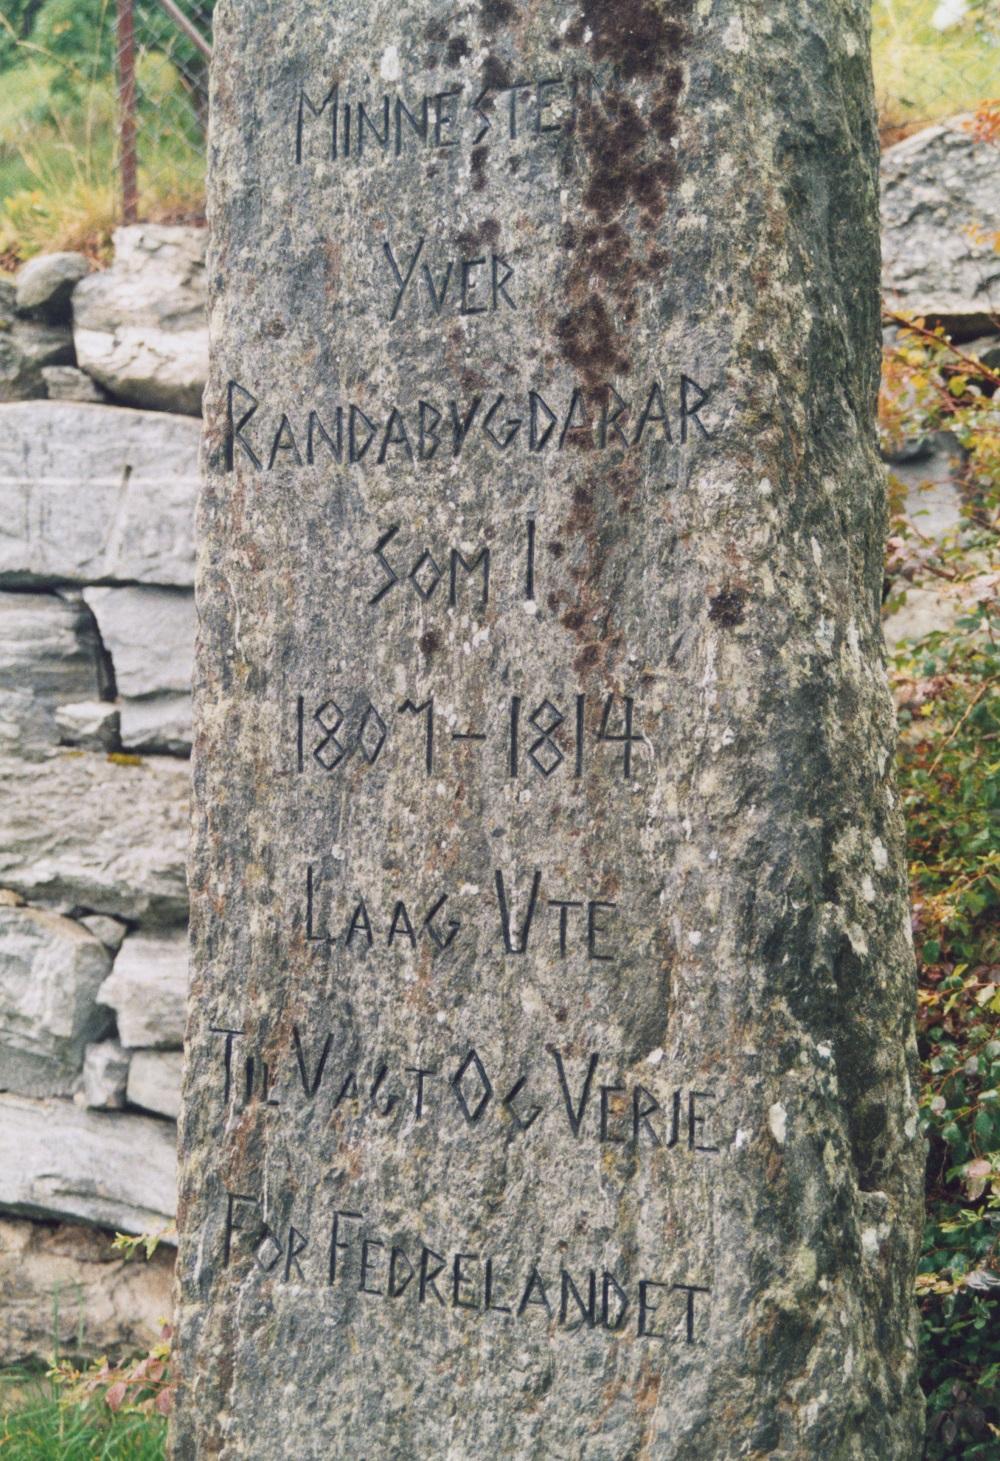 MINNESTEIN
YVER
RANDABYGDARAR
SOM I
1807-1814
LAAG UTE
TIL VAGT OG VERJE
FOR FEDRELANDET